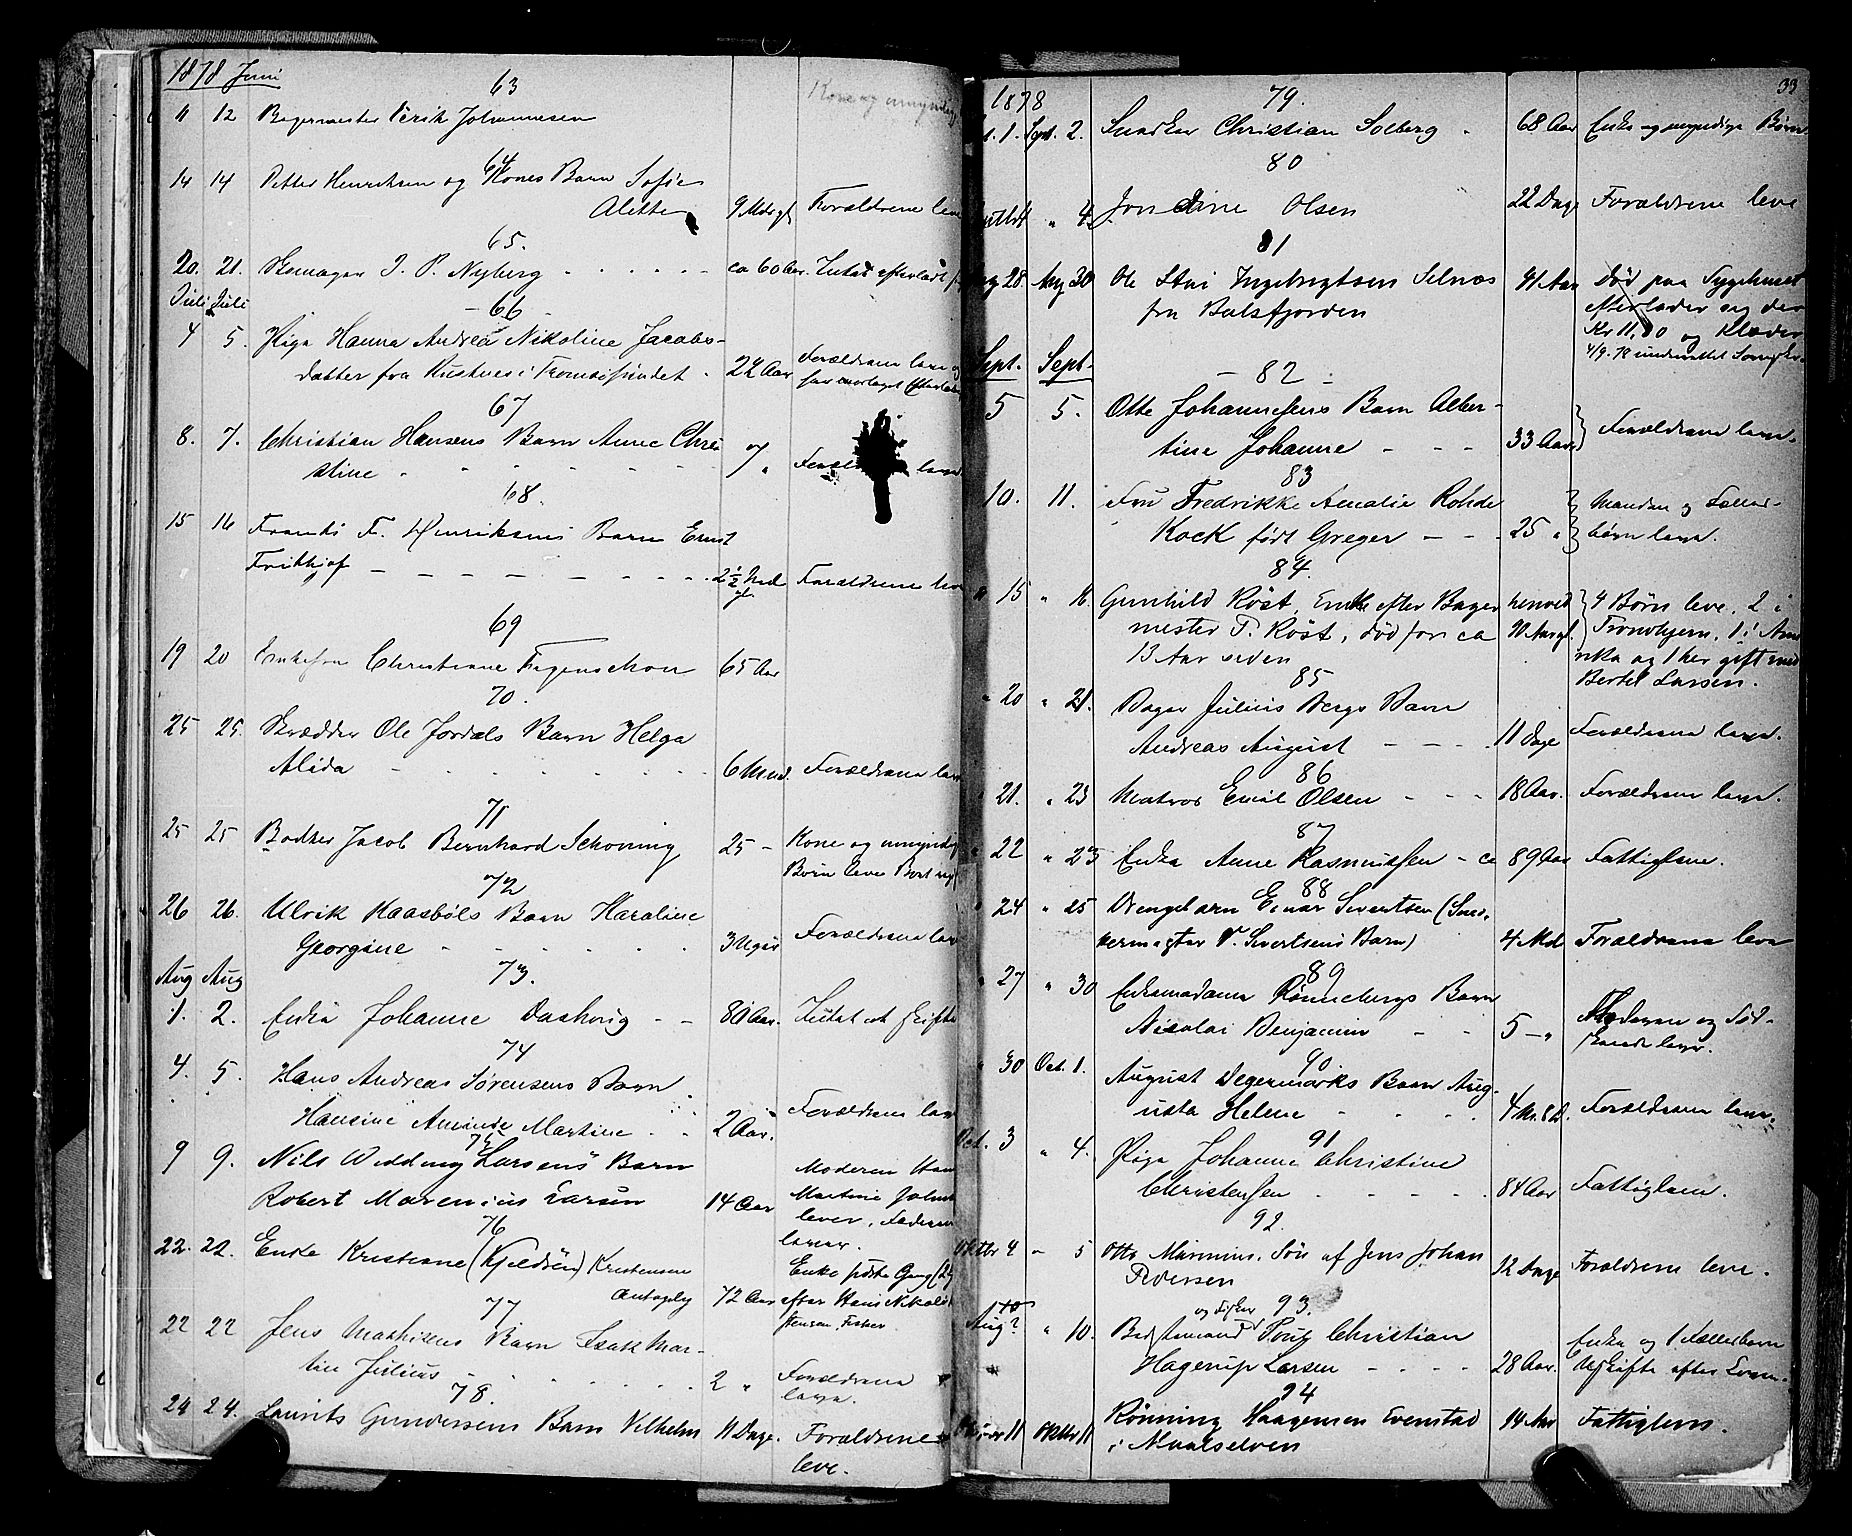 1878 Juni
63
11 12 Bagermester Erik Johannesen Kone og umyndig
64
14 14 Petter Henriksen og Kones Barn Sofie
Alette 9 Mdr gl Forældrene leve
65.
20. 21. Skomager I. P. Nyberg ca 60 Aar. Intet efterladt
Juli Juli
66
4 5. Pige Hanna Andrea Nikoline Jacobs-
datter fra i Tromsøsundet 22 Aar Forældrene leve og
har
67
8. 7. Christian Hansens Barn Anne Chri
stine 7 " leve
68.
15 16 Frantz F. Henriksens Barn Ernst
Frithjof 2½ Md gl. Forældrene leve
69
19 20 Enkefru Christiane Fagenschou 65 Aar
70.
25 25. Skrædder Ole Jordals Barn Helga
Alida 6 Mnd. Forældrene leve
71
25 25 Bødker Jacob Bernhard Schøning 25 – Kone og umyndig
Børn leve
72
26 26. Ulrik Kaasbøls Barn Haraline
Georgine 3 Uger Forældrene leve
Aug Aug
73.
1. 2. Enke Johanne Daahvig 80 Aar. Intet at skifte
74
4. 5. Hans Andreas Sørensens Barn
Hansine Aminde Martine 2 Aar. Forældrene leve
75
9 9. Nils Wedding Larsens Barn Moderen
Robert Marenius Larsen 14 Aar Martine
lever, Faderen
lever.
76
22. 22. Enke Kristiane (Kjeldsen) Kristensen Enke første Gang
Antagelig 72 Aar efter Hans Nikolai
Fisker
77
22 22 Jens Mathisens Barn Isak Mar-
tin Julius 2 " Forældrene
leve.
78.
24 24. Laurits Gundersens Barn Vilhelm 11 Dage. Forældrene
leve.
33
1878
79.
Spt. 1. Spt. 2. Snedker Christian Solberg 68 Aar Enke og myndige Børn
80
" 4. Jondine Olsen 22 Dage Forældrene leve
81
Aug 28. Aug 30 Ole Stai Ingebrigtsen Selnæs 41 Aar Død paa Sygehuset
fra Balsfjorden efterlader sig
Kr 11, 80 og Klæder
4/9-78 underrettet
Sept. Sept.
82
5 5. Otte Johannesens Barn Alber-
tine Johanne 33 Aar Forældrene leve.
83
10. 11. Fru Fredrikke Amalie Rohde Manden og Fælles-
Kock født Greger 25 " børn leve.
84.
" 15 " 16. Gunhild Røst, Enke efter Bager henved 4 Børn leve, 2 i
mester T. Røst, død for ca 90 Aar gl. Tronhjem, 1 i Ame
13 Aar siden rika og 1 her gift med
Bertel Larsen.
85
" 20 " 21. Bager Julius Bergs Barn
Andreas August 11 Dage Forældrene leve.
86
21. " 23 Matros Emil Olsen 18 Aar. Forældrene leve.
87
" 22 " 23 Enke Anne Rasmussen ca 89 Aar Fattiglem.
88
" 24 " 25 Drengebarn Einar Sivertsen (Sned-
kermester P. Sivertsens Barn) 4 Md Forældrene leve
89
" 27 " 30 Enkemadame Rønnebergs Barn
Nicolai Benjamin 5 – " Moderen og Sød-
skende lever.
90
" 30 Oct. 1. August Degermarks Barn Aug-
usta Helene 4 M. 8 D. Forældrene leve.
91
Oct. 3 " 4. Pige Johanne Christine
Christensen 84 Aar Fattiglem.
92.
Oktbr 4 – 5 Otto Marinius, Søn af Jens Johan
Pedersen 12 Dage Forældrene leve.
93.
og Fisker
Aug? " 10. Bedstemand Christian Enke og 1 Fællesbarn
Hagerup Larsen 28 Aar.
94
11 Oktbr 11 Rønning Haagensen Evenstad 14 Aar Fattiglem.
i Maalselven